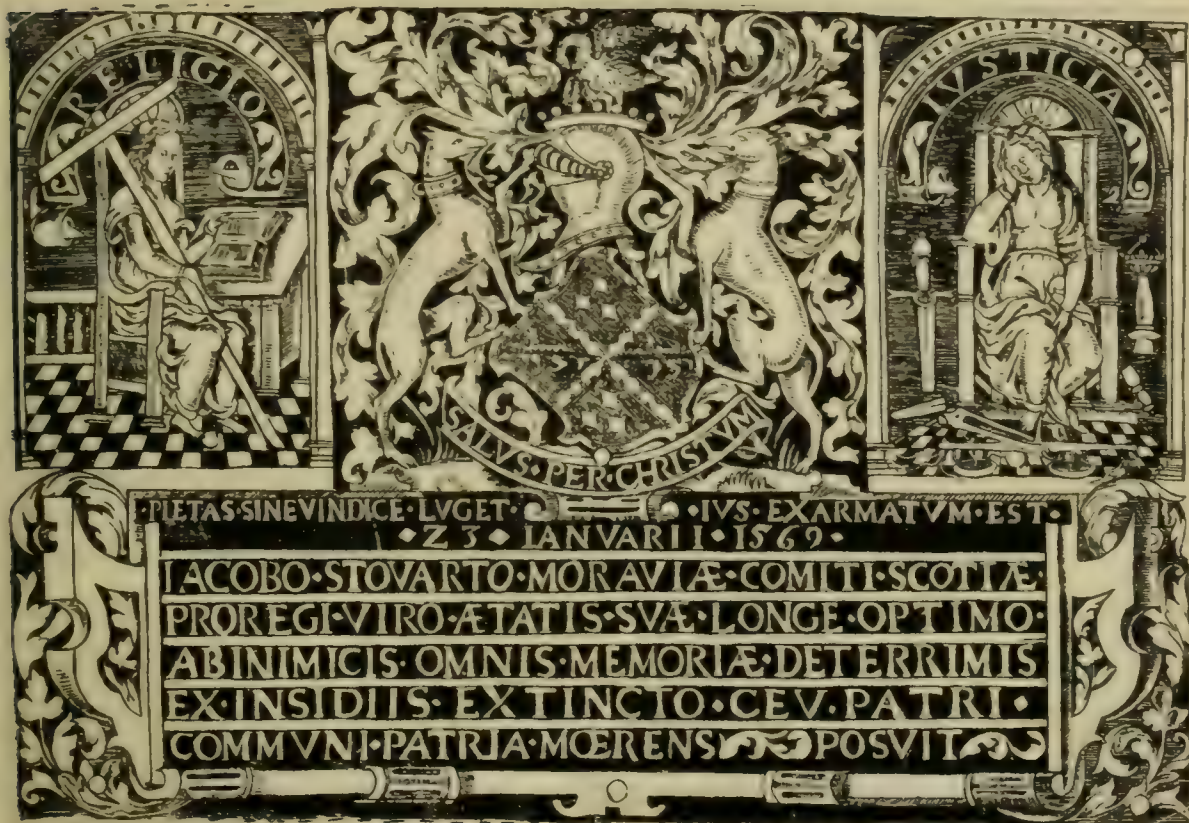 RELIGIO
IVSTICIA
SALVS·PER·CHRISTVM
·PIETAS·SINE VINDICE·LVGET·
·IVS·EXARMATVM·EST·
·Z3·IANVARII·1569·
IACOBO·STOVARTO·MORAVIÆ·COMITI·SCOTIÆ·
PROREGI·VIRO·ÆTATIS·SVÆ·LONGE·OPTIMO·
AB INIMICIS·OMNIS·MEMORIÆ·DETERRIMIS
EX·INSIDIIS·EXTINCTO·CEV·PATRI·
COMMVNI·PATRIA·MŒRENS POSVIT